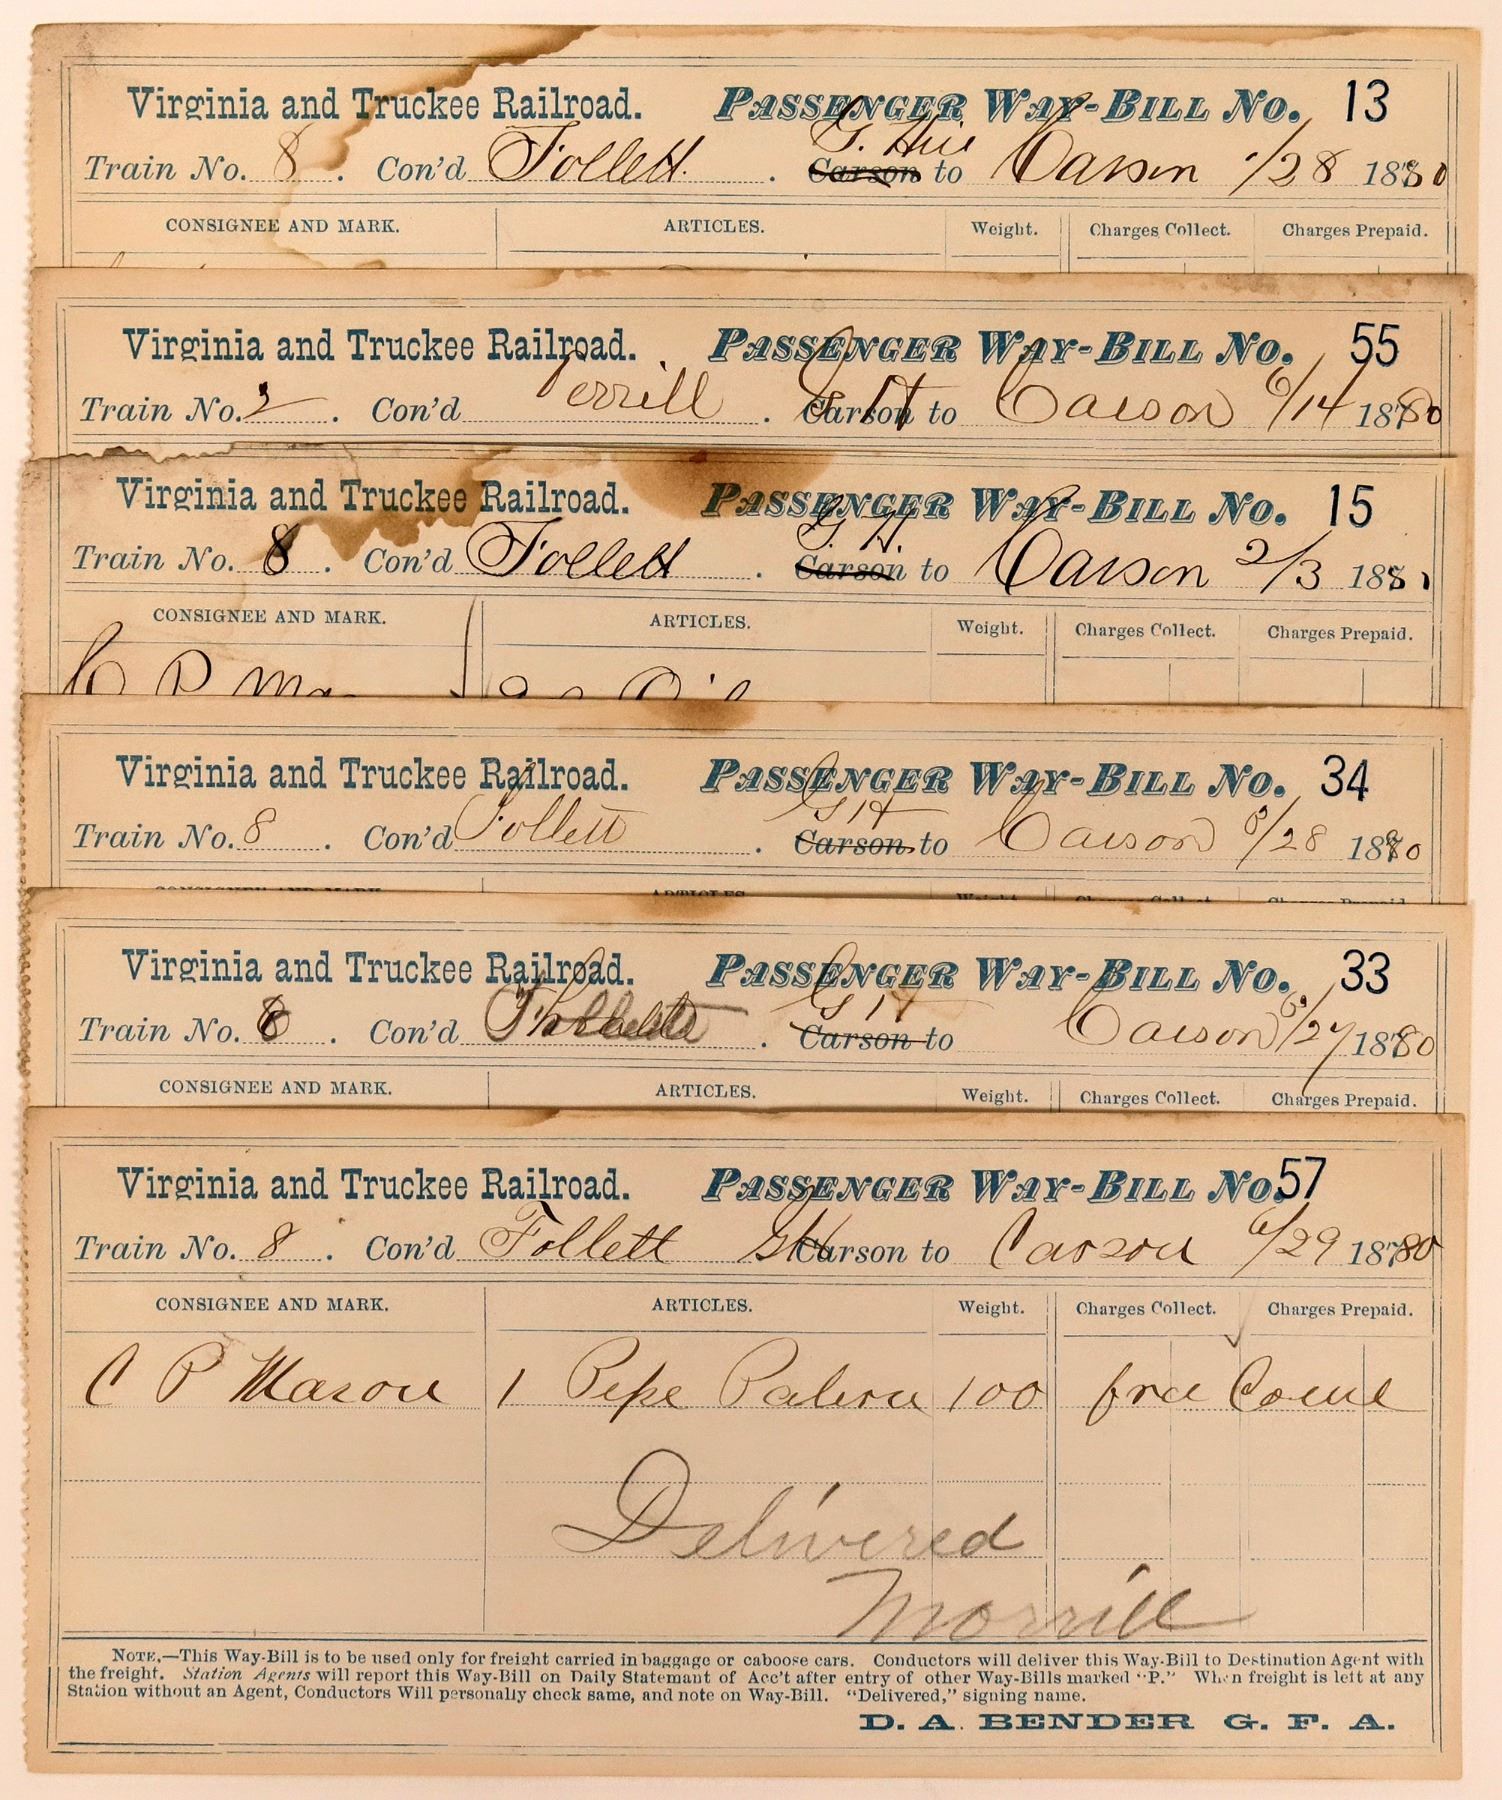 Virginia and Truckee Railroad. PASSENGER WAY-BILL No. 13
Train No. 8. Con'd Follett. G. Hill Carson to Carson 1/28 1880
CONSIGNEE AND MARK. ARTICLES. Weight. Charges Collect. Charges Prepaid.
Virginia and Truckee Railroad. PASSENGER WAY-BILL No. 55
Train No. 2. Con'd Terrill. G H Carson to Carson 6/14 1880
Virginia and Truckee Railroad. PASSENGER WAY-BILL No. 15
Train No. 8. Con'd Follett. G. H. Carson to Carson 2/3 1881
CONSIGNEE AND MARK. ARTICLES. Weight. Charges Collect. Charges Prepaid.
Virginia and Truckee Railroad. PASSENGER WAY-BILL No. 34
Train No. 8. Con'd Follett. G H Carson to Carson 8/28 1880
CONSIGNEE AND MARK. ARTICLES. Weight. Charges Collect. Charges Prepaid.
Virginia and Truckee Railroad. PASSENGER WAY-BILL No. 33
Train No. 8. Con'd Follett. G H Carson to Carson 8/27 1880
CONSIGNEE AND MARK. ARTICLES. Weight. Charges Collect. Charges Prepaid.
Virginia and Truckee Railroad. PASSENGER WAY-BILL No. 57
Train No. 8. Con'd Follett GH Carson to Carson 6/29 1880
CONSIGNEE AND MARK. ARTICLES. Weight. Charges Collect. Charges Prepaid.
C P Mason 1 100
Delivered
Morrill
NOTE.—This Way-Bill is to be used only for freight carried in baggage or caboose cars. Conductors will deliver this Way-Bill to Destination Agent with
the freight. Station Agents will report this Way-Bill on Daily Statement of Acc't after entry of other Way-Bills marked "P." When freight is left at any
Station without an Agent, Conductors Will personally check same, and note on Way-Bill. "Delivered," signing name.
D. A. BENDER G. F. A.